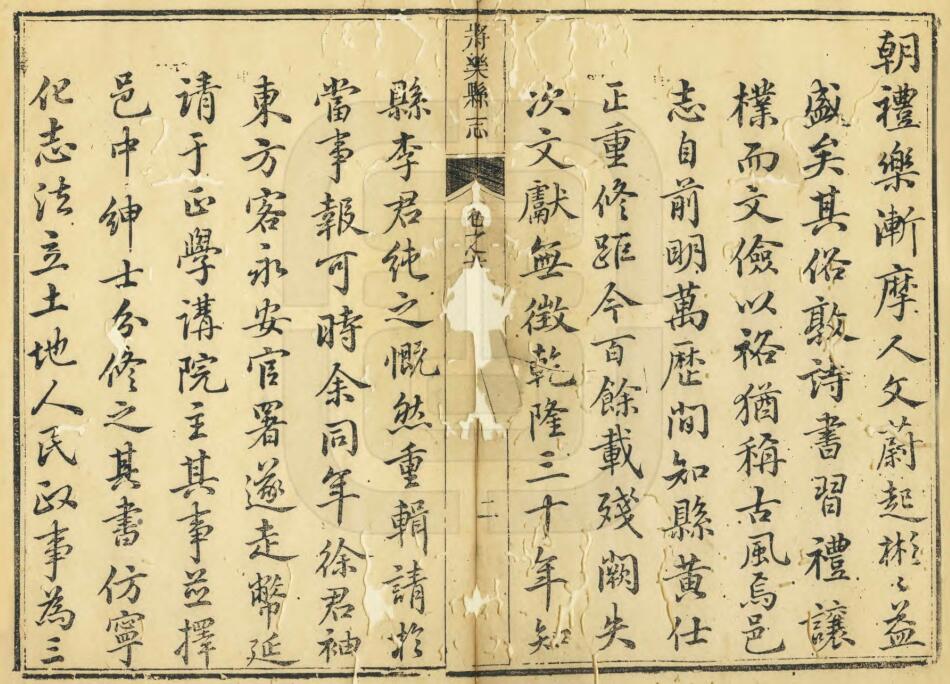 朝禮樂漸摩人文蔚起彬〻益
盛矣其俗敦詩書習禮讓
樸而文儉以裕猶稱古風焉邑
志自前明萬歷間知縣黃仕
正重修距今百餘載殘闕失
次文獻無徵乾隆三十年知
將樂縣志
二
縣李君純之慨然重輯請於
當事報可時余同年徐君袖
東方客永安官署遂走幣延
請于正學講院主其事並擇
邑中紳士分修之其書仿寧
化志法立土地人民政事為三